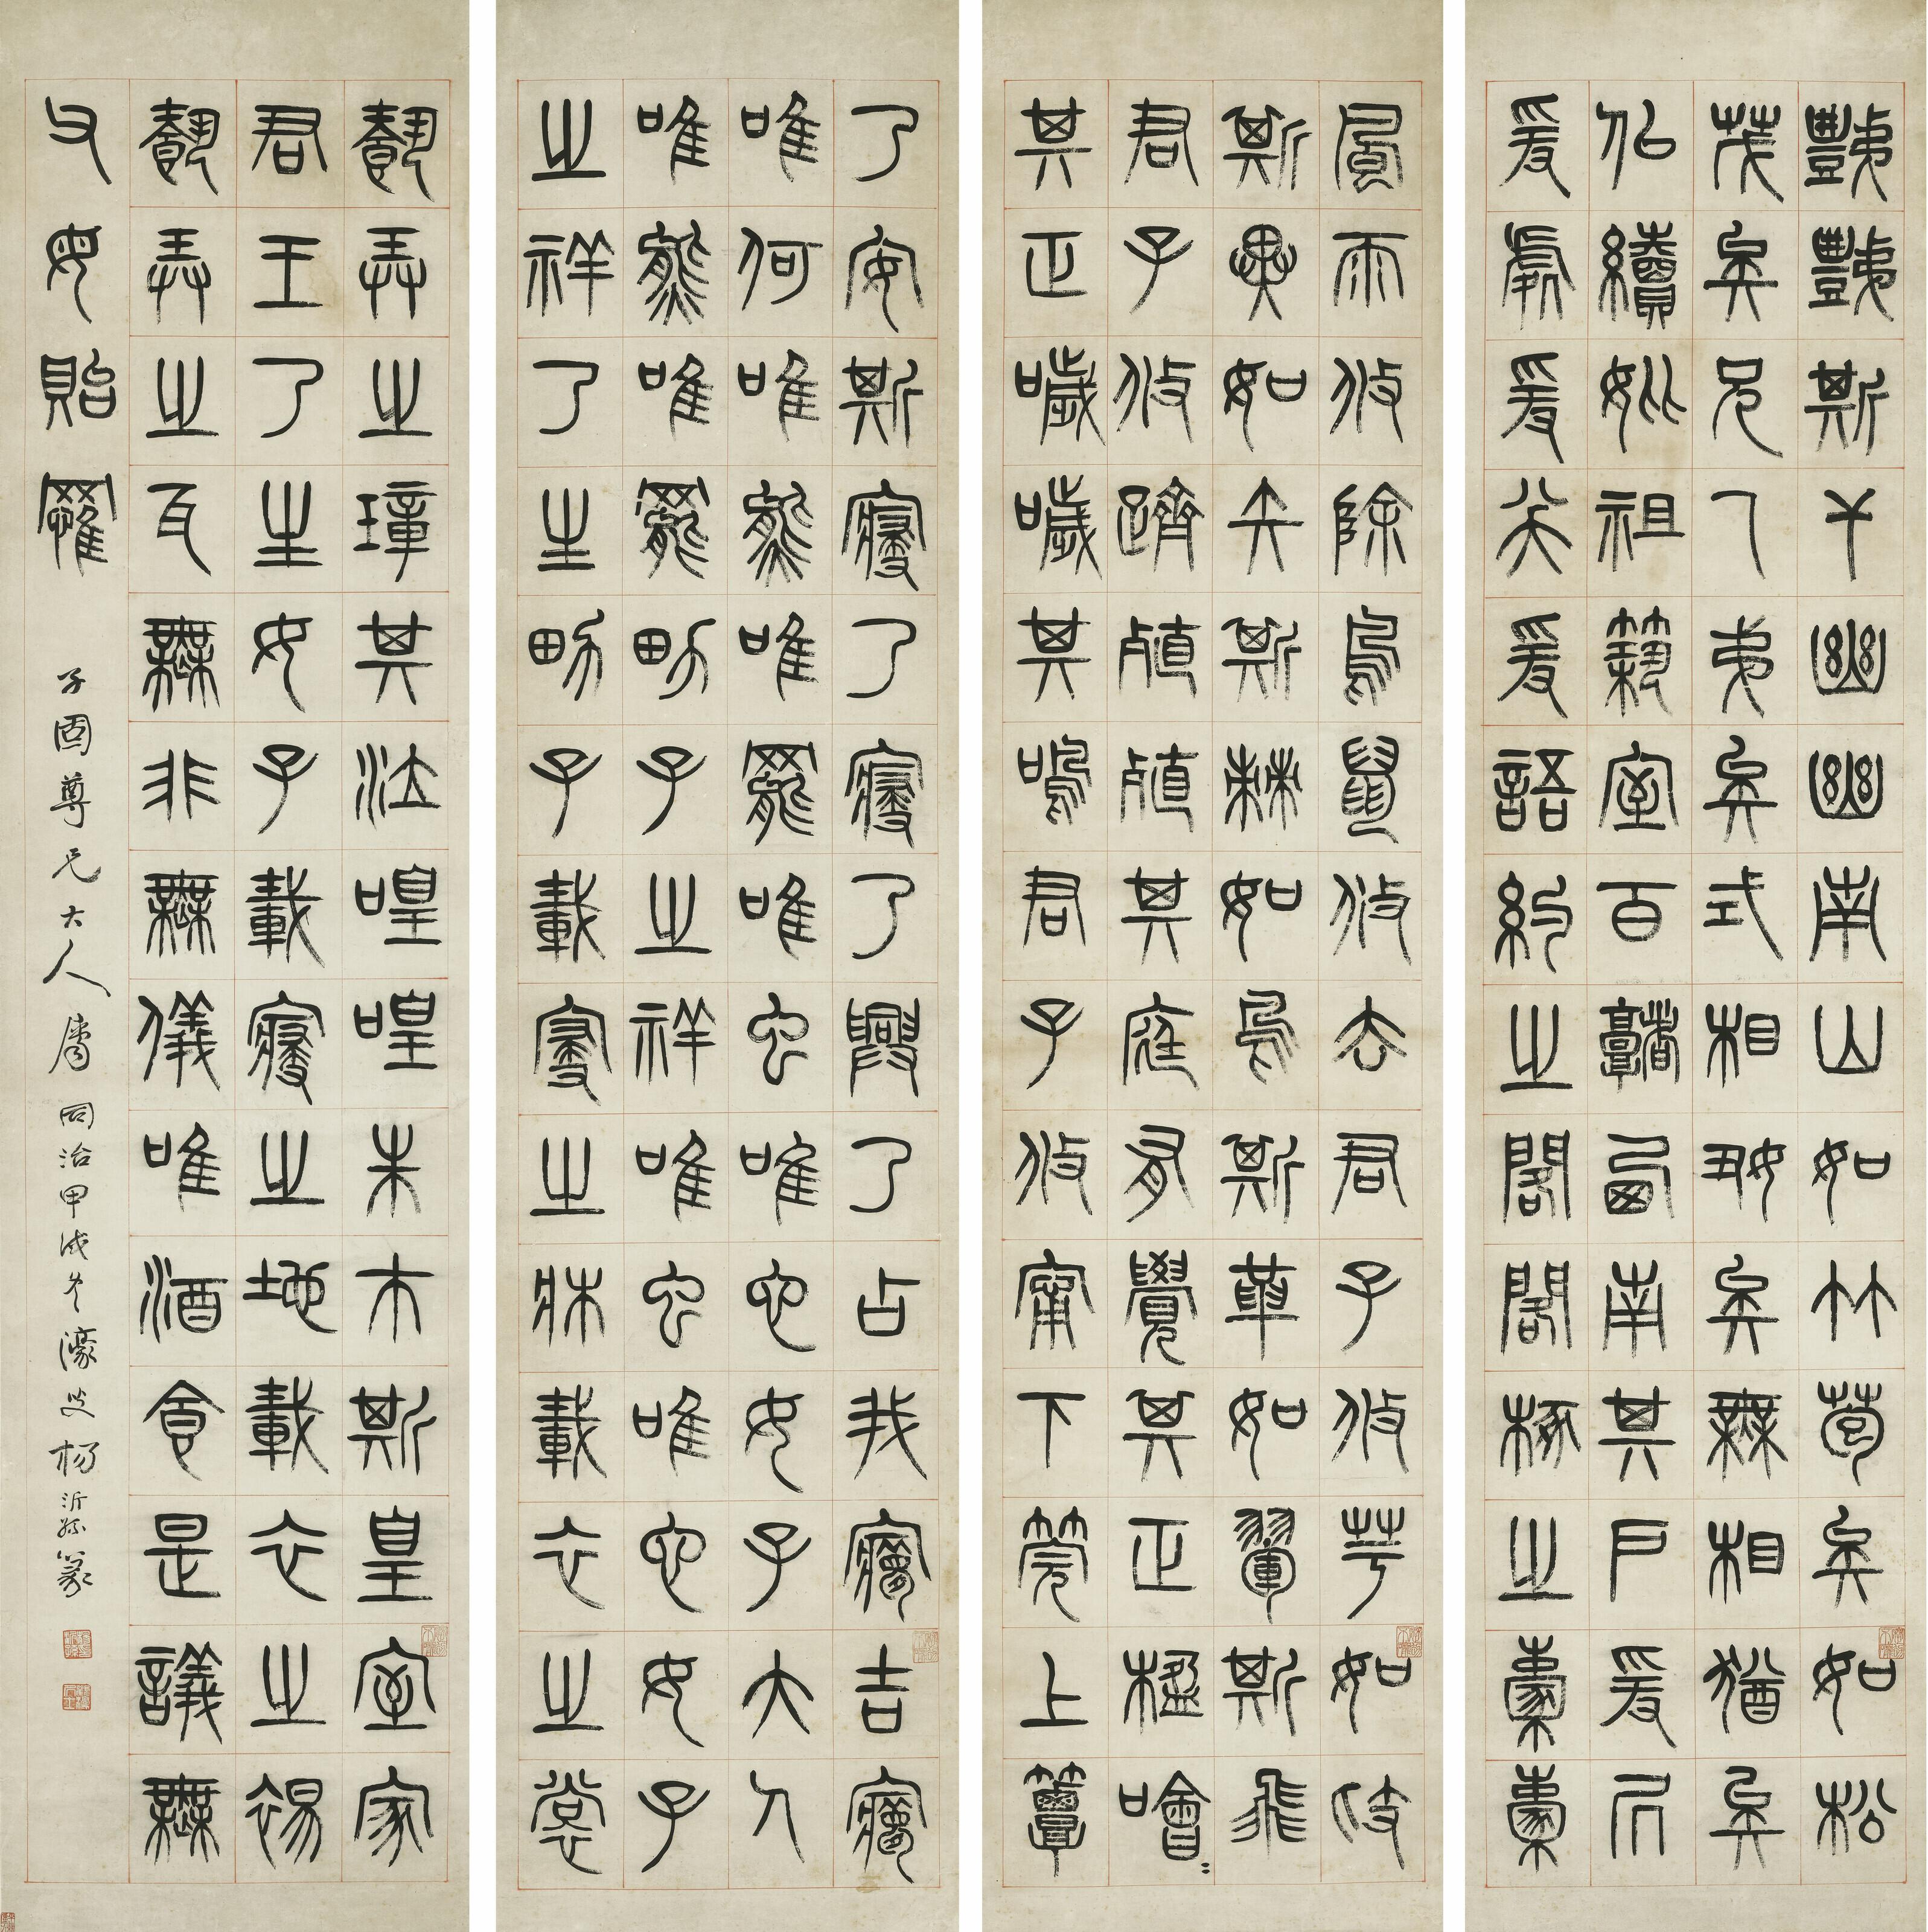 豑豑斯干幽幽南山如竹苞矣如松
茂矣兄及弟矣式相好矣無相猶矣
佀續妣祖築室百堵西南其戶爰凥
爰處爰笑爰語約之閣閣椓之橐橐
風雨攸除鳥鼠攸去君子攸芋如跂
斯翼如矢斯棘如鳥斯革如翬斯飛
君子攸躋殖殖其庭有覺其正楹噲〻
其正噦噦其鳴君子攸甯下莞上簟
乃安斯寢乃寢乃興乃占我夢吉夢
唯何唯熊唯羆唯虫唯它女子大人
唯熊唯羆男子之祥唯虫唯它女子
之祥乃生男子載寢之牀載衣之裳
載弄之璋其泣喤喤朱巿斯皇室家
君王乃生女子載寢之地載衣之裼
載弄之瓦無非無儀唯酒食是議無
父母貽罹
子固尊兄大人屬 同治甲戌冬濠叟楊沂孫篆